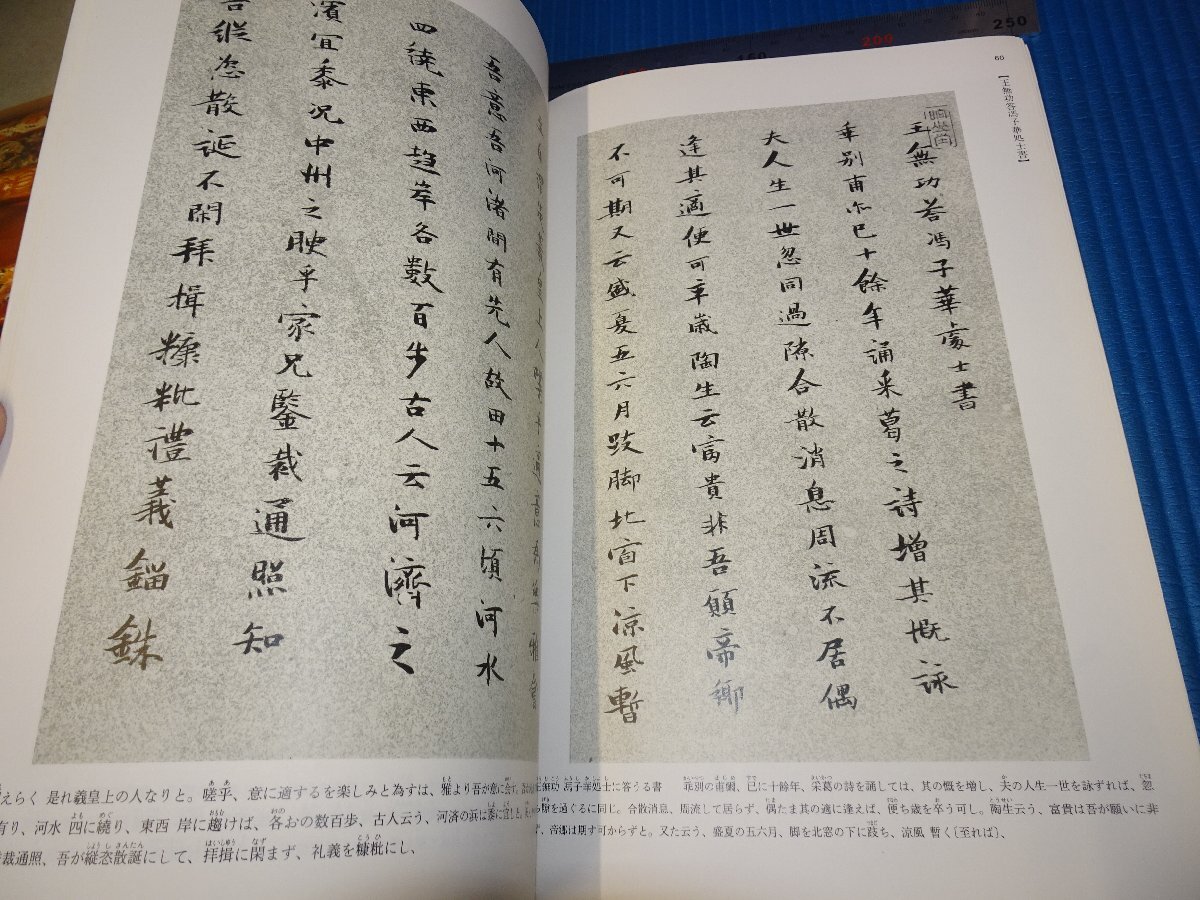 66
【王無功答馮子華処士書】
王無功荅馮子華處士書
乖別甫尓已十餘年誦采葛之詩増其慨詠
夫人生一世忽同過隙合散消息周流不居偶
逢其適便可卒歲陶生云富貴非吾願帝鄉
不可期又云盛夏五六月跂脚北窗下涼風暫
吾意吾河渚間有先人故田十五六頃河水
四繞東西趍岸各數百步古人云河濟之
濱宜黍況中州之腴乎家兄鑒裁通照知
吾縱恣散誕不閑拜揖糠粃禮義錙銖
王無功 馮子華処士に答うる書 乖別の甫爾、已に十餘年、采葛の詩を誦しては、其の慨を増し、夫の人生一世を詠ずれば、忽
過ぐるに同じ。合散消息、周流して居らず、偶たま其の適に逢えば、便ち歳を卒う可し。陶生云う、富貴は吾が願いに非
ず、帝郷は期す可からずと。又た云う、盛夏の五六月、脚を北窓の下に跂ち、涼風 暫く〔至れば〕、
えらく 是れ羲皇上の人なりと。嗟乎、意に適するを楽しみと為すは、雅より吾が意に会す。
有り、河水 四に繞り、東西 岸に趨けば、各おの数百歩、古人云う、河済の浜は黍に宜しと、
裁通照、吾が縦恣散誕にして、拝揖に閑まず、礼義を糠粃にし、
150
200
250